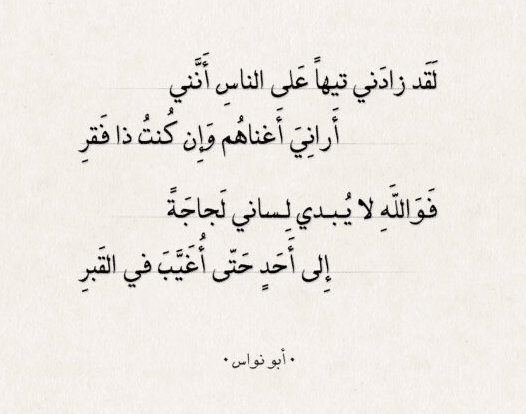 لَقَد زادَني تيهاً عَلى الناسِ أَنَّني
أَرانِيَ أَغناهُم وَإِن كُنتُ ذا فَقرِ
فَوَاللَّهِ لا يُبدي لِساني لَجاجَةً
إِلى أَحَدٍ حَتّى أُغَيَّبَ في القَبرِ
• أبو نواس •